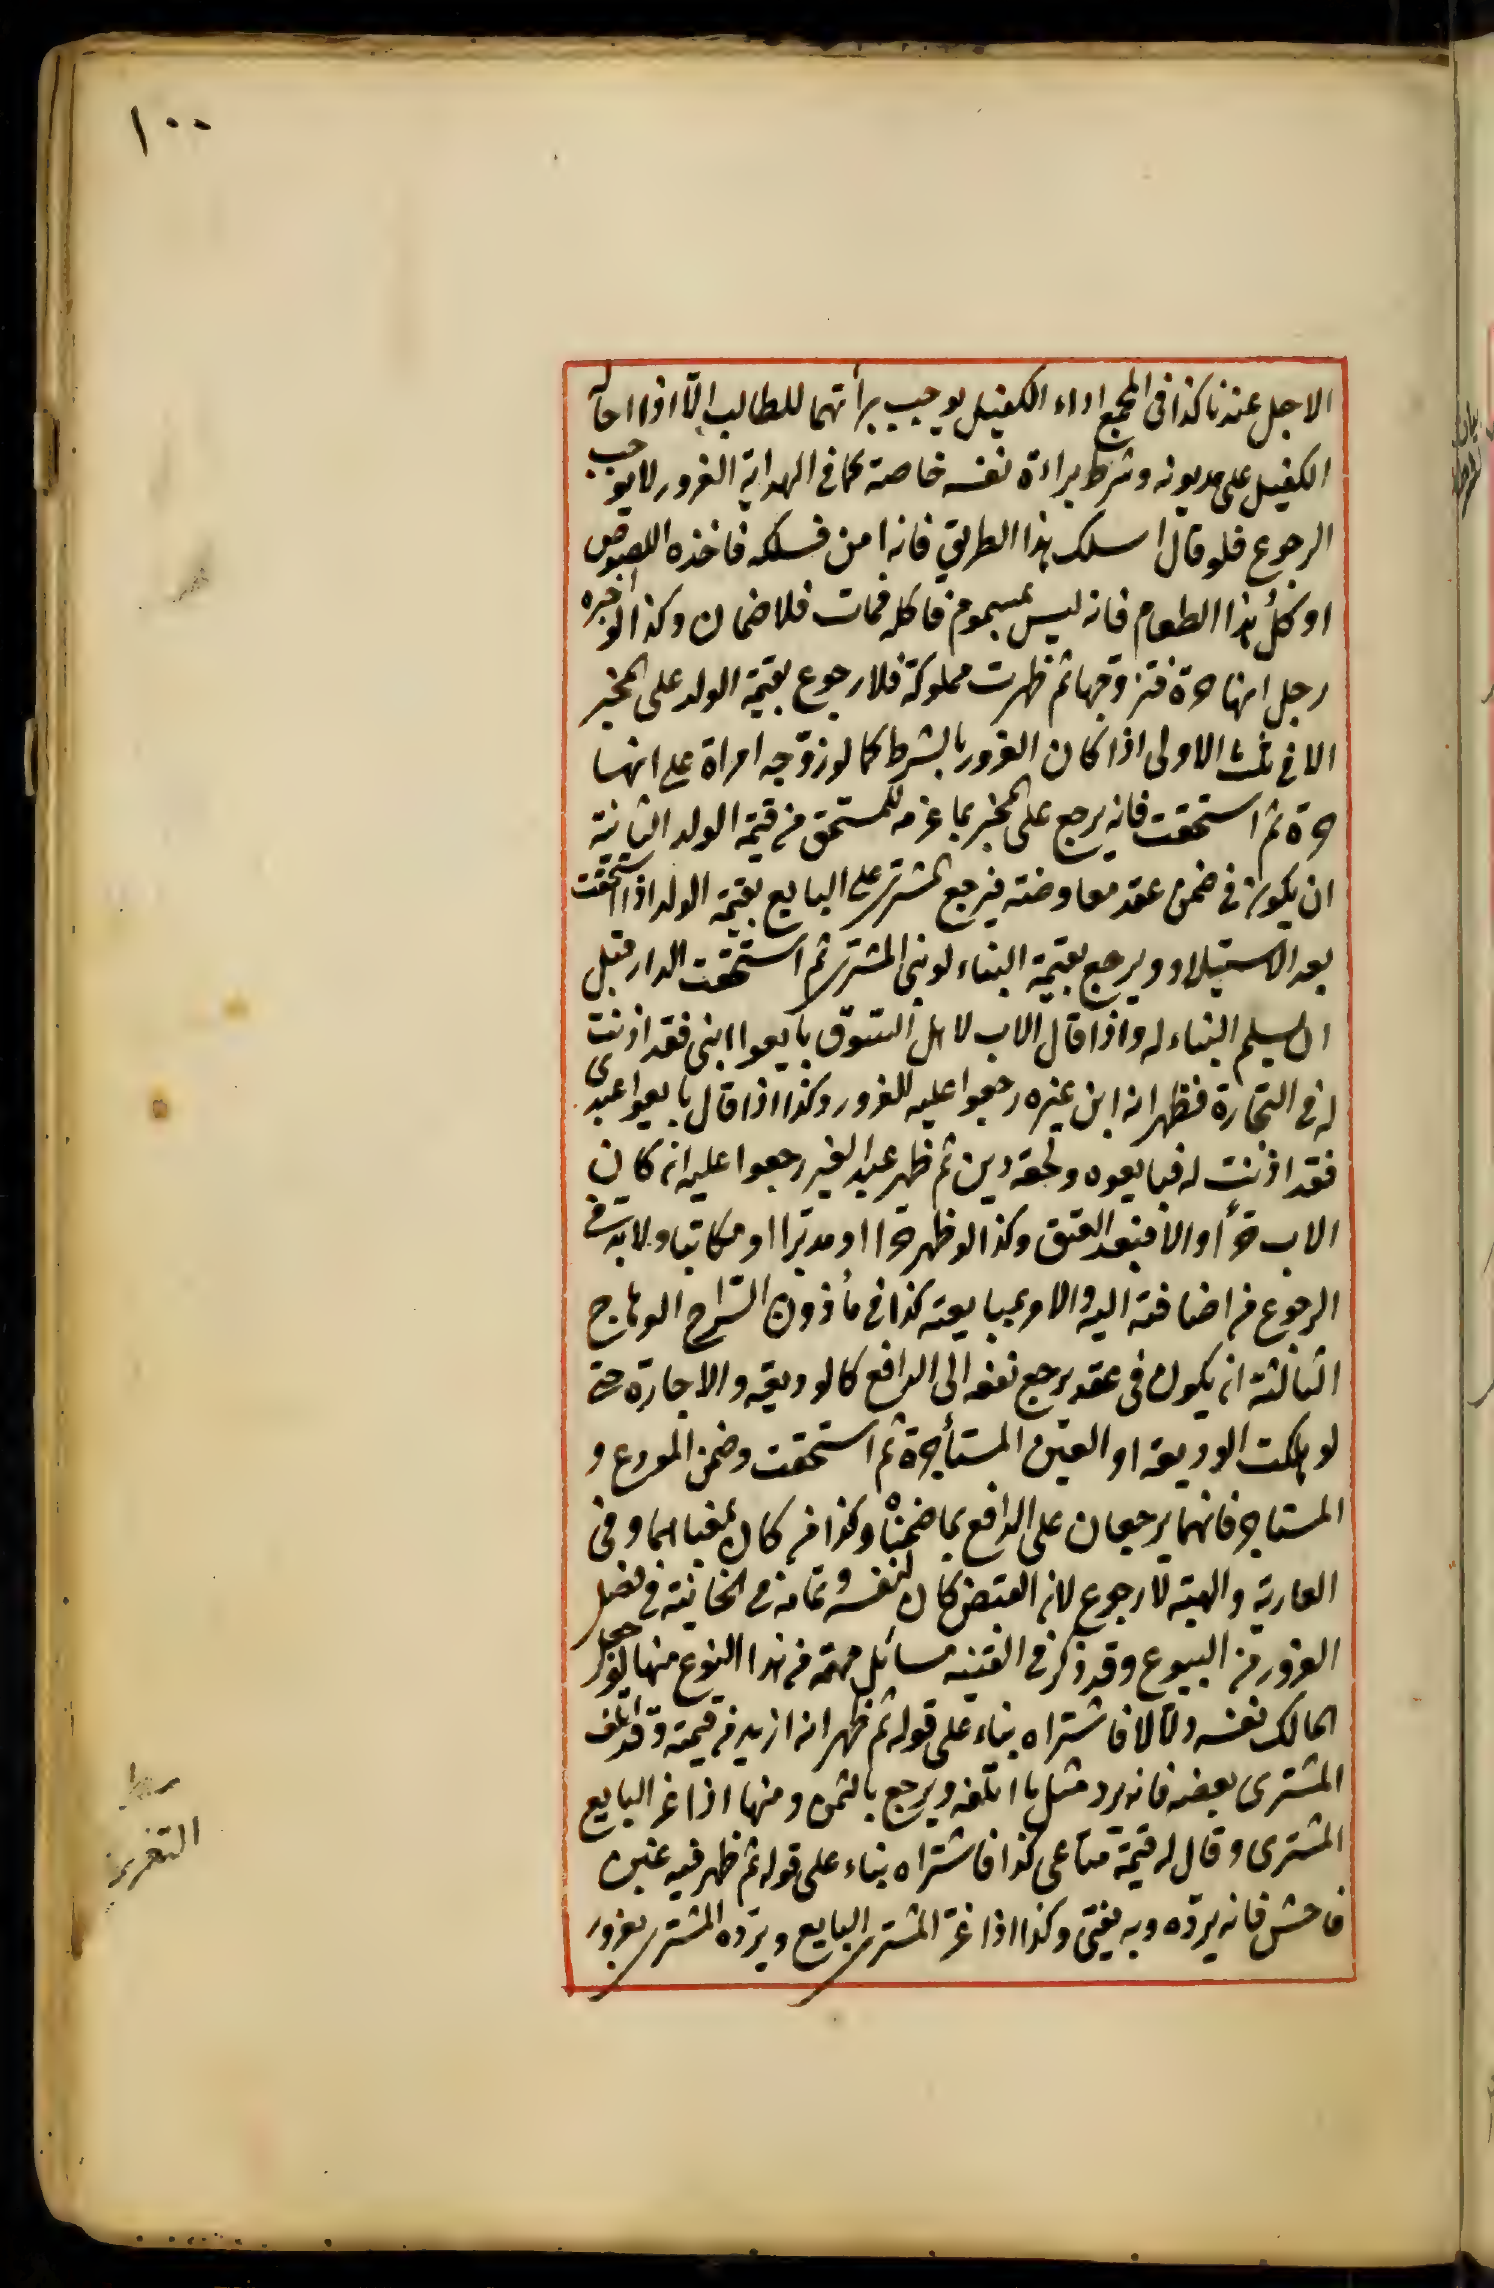 ١٠٠
الاجل عندنا كذا فى المجمع اداء الكفيل يوجب برأتهما للطالب الّا اذا احاله
الكفيل على مديونه وشرط براءة نفسه خاصة كما فى الهداية الغرور لا يوجب
الرجوع فلو قال اسلك هذا الطريق فانه امن فسلكه فاخذه اللصوص
او كُلْ هذا الطعام فانه ليس بمسموم فاكله فمات فلا ضمان وكذا لو اخبره
رجل انها حرة فتزوّجها ثم ظهرت مملوكة فلا رجوع بقيمة الولد على المخبر
الا فى ثلث الاولى اذا كان الغرور بالشرط كما لو زوّجه امراة على انها
حرة ثم استحقت فانه يرجع على المخبر بما غرمه للمستحق من قيمة الولد الثانية
ان يكون فى ضمن عقد معاوضة فيرجع المشترى على البايع بقيمة الولد اذا استحقت
بعد الاستيلاد ويرجع بقيمة البناء لو بنى المشترى ثم استحقت الدار قبل
ان يسلم البناء له واذا قال الاب لاهل السّوق بايعوا ابنى فقد اذنت
له فى التجارة فظهر انه ابن غيره رجعوا عليه للغرور وكذا اذا قال بايعوا عبدى
فقد اذنت له فبايعوه ولحقه دين ثم ظهر عبد الغير رجعوا عليه ان كان
الاب حرّاً والا فبعد العتق وكذا لو ظهر حرّا او مدبّرا او مكاتبا ولا بد فى
الرجوع من اضافته اليه والامر بمبايعته كذا فى مأذون السّراج الوهاج
الثالثة ان يكون فى عقد يرجع نفعه الى الدافع كالوديعة والاجارة حتى
لو هلكت الوديعة او العين المستأجرة ثم استحقت وضمن المودع و
المستاجر فانهما يرجعان على الدافع بما ضمناه وكذا من كان بمعناهما وفى
العارية والهبة لا رجوع لان القبض كان لنفسه وتمامه فى الخانية فى فصل
الغرور من البيوع وقد ذكر فى القنية مسائل مهمة من هذا النوع منها لو جعل
المالك نفسه دلّالا فاشتراه بناء على قوله ثم ظهر انه ازيد من قيمته وقد اتلف
المشترى بعضه فانه يرد مثل ما اتلفه ويرجع بالثمن ومنها اذا غر البايع
المشترى وقال له قيمة متاعى كذا فاشتراه بناء على قوله ثم ظهر فيه غبن
فاحش فانه يردّه وبه يفتى وكذا اذا غرّ المشترى البايع ويردّه المشترى بغرور